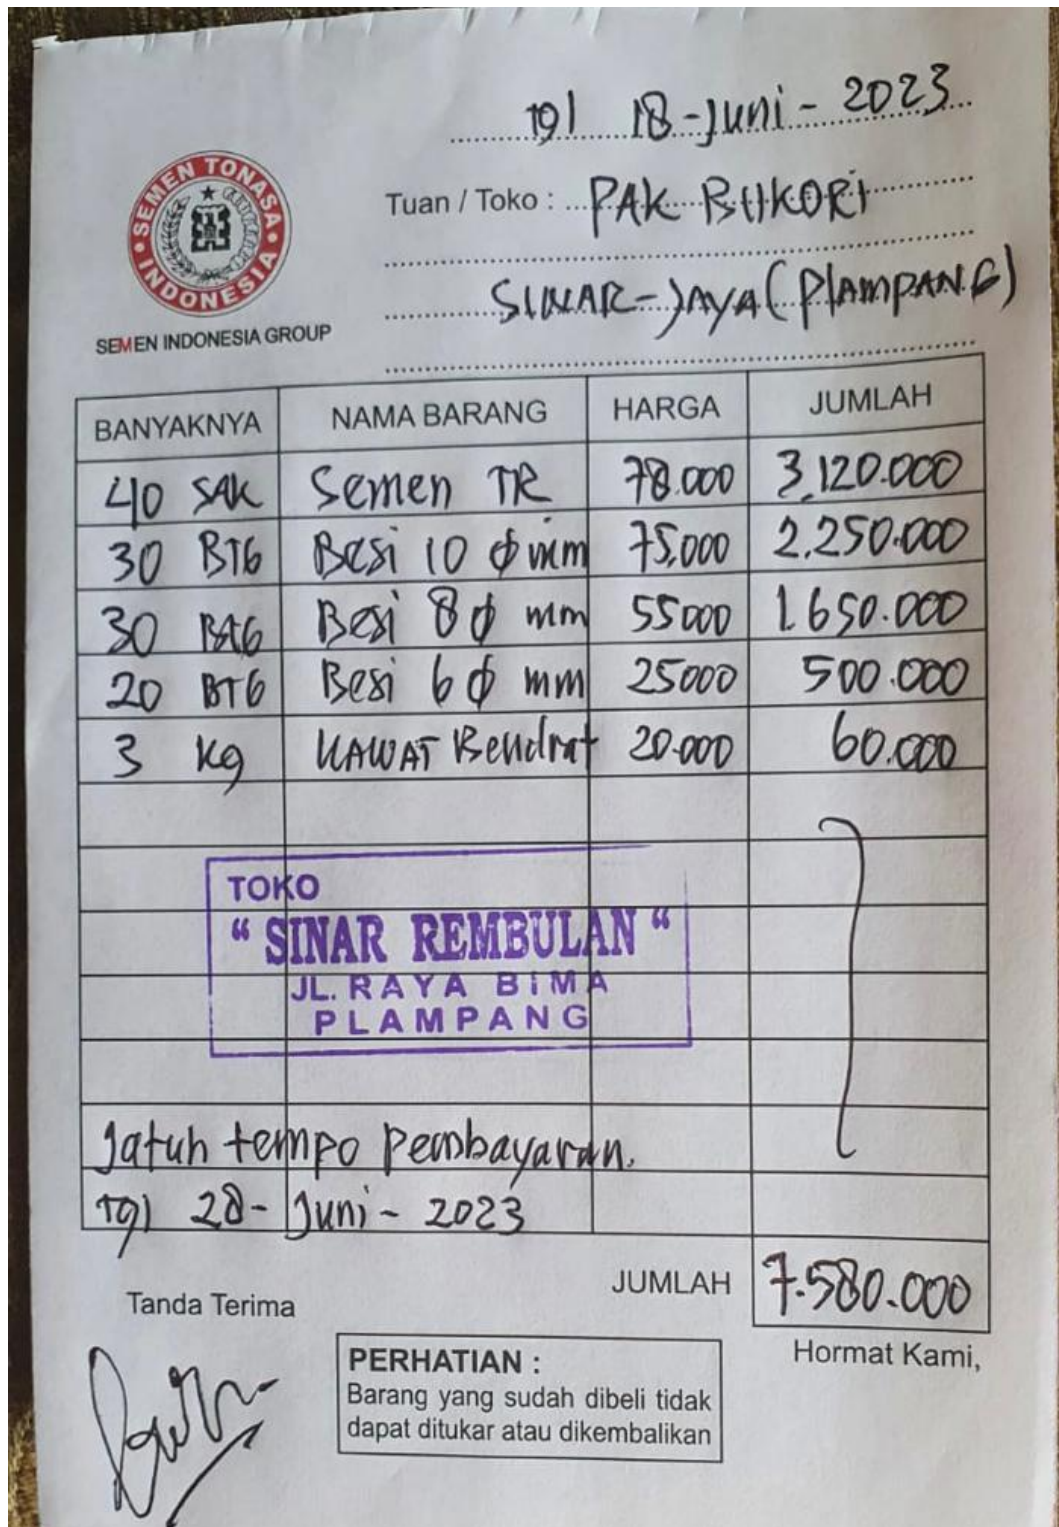 Tgl 18-Juni-2023
SEMEN TONASA
INDONESIA
SEMEN INDONESIA GROUP
Tuan / Toko : PAK BUKORI
SINAR-JAYA (PLAMPANG)
BANYAKNYA NAMA BARANG HARGA JUMLAH
40 SAK Semen TR 78.000 3.120.000
30 BTG Besi 10 ϕ mm 75.000 2.250.000
30 BTG Besi 8 ϕ mm 55000 1.650.000
20 BTG Besi 6 ϕ mm 25000 500.000
3 kg KAWAT Bendrat 20.000 60.000
TOKO
“ SINAR REMBULAN “
JL. RAYA BIMA
PLAMPANG
Jatuh tempo Pembayaran.
Tgl 28-Juni-2023
JUMLAH 7.580.000
Tanda Terima
Hormat Kami,
PERHATIAN :
Barang yang sudah dibeli tidak
dapat ditukar atau dikembalikan